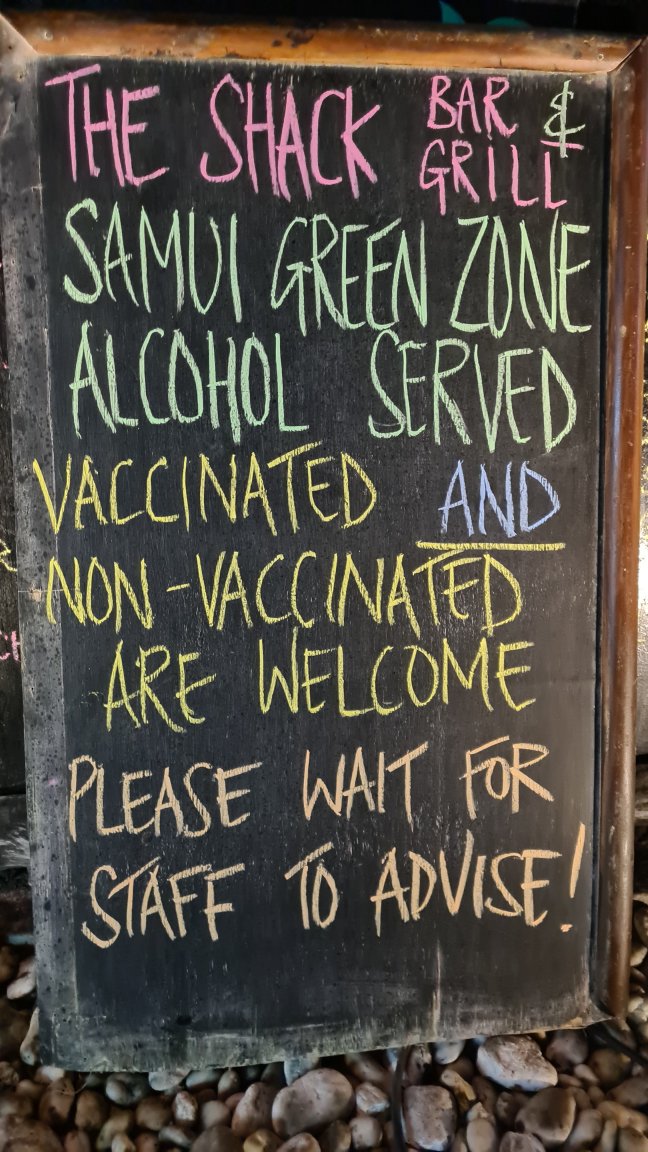 THE SHACK BAR &
GRILL
SAMUI GREEN ZONE
ALCOHOL SERVED
VACCINATED AND
NON-VACCINATED
ARE WELCOME
PLEASE WAIT FOR
STAFF TO ADVISE!